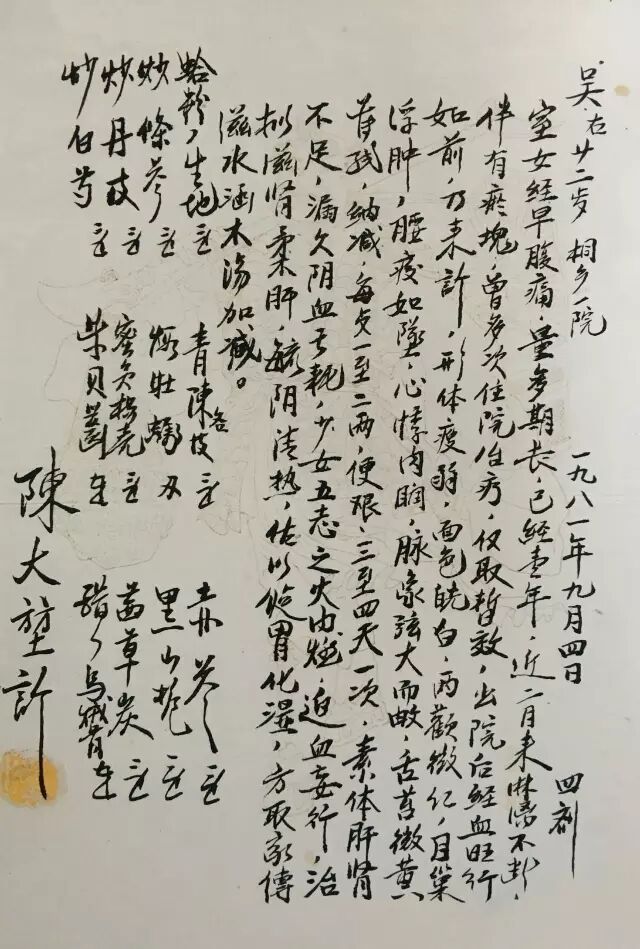 吴右 廿二岁 桐乡一院 一九八一年九月四日 四剂
室女经早腹痛，量多期长，已经壹年，近二月来淋漓不断，
伴有瘀块，曾多次住院治疗，仅取暂效，出院后经血旺行
如前，乃来诊，形体疲弱，面色㿠白，两颧微红，目窠
浮肿，腰痠如坠，心悸肉瞤，脉象弦大而，舌苔微黄
苔，纳减，每一至二两，便艰，三至四天一次，素体肝肾
不足，漏久阴血亏耗，少女五志之火内燃，迫血妄行，治
拟滋肾柔肝，毓阴清热，佐以和胃化湿，方取家传
滋水涵木汤加减。
蛤粉，生地 青陈各 赤芍
炒條芩 煅牡蛎 黑山栀
炒丹皮 蜜炙枳壳 茜草炭
炒白芍 紫贝齿 醋乌贼骨
陳大堃